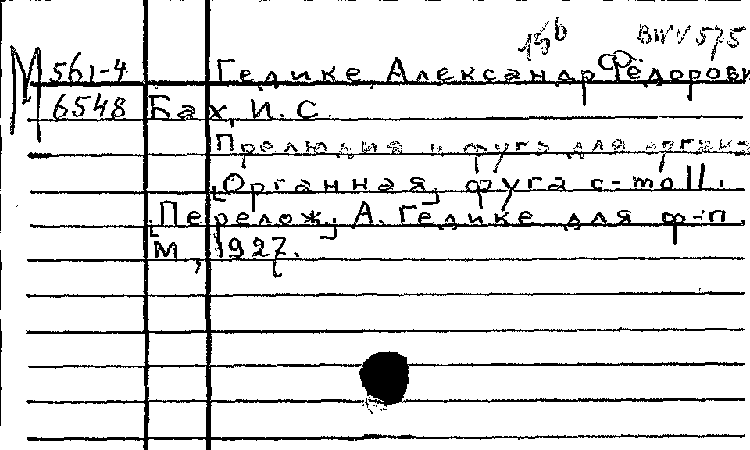 15b BWV 575
М 561-4 Гедике, Александр Федорович
6548 Бах, И. С.
Прелюдия и фуга для органа
[Органная] фуга c-moll.
[Перелож.] А. Гедике для ф-п.
М., 1927.